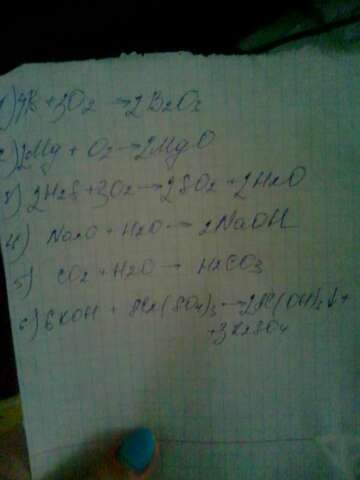 1) 4B + 3O2 → 2B2O3
2) 2Mg + O2 → 2MgO
3) 2H2S + 3O2 → 2SO2 + 2H2O
4) Na2O + H2O → 2NaOH
5) CO2 + H2O → H2CO3
6) 6KOH + Al2(SO4)3 → 2Al(OH)3↓ +
+ 3K2SO4